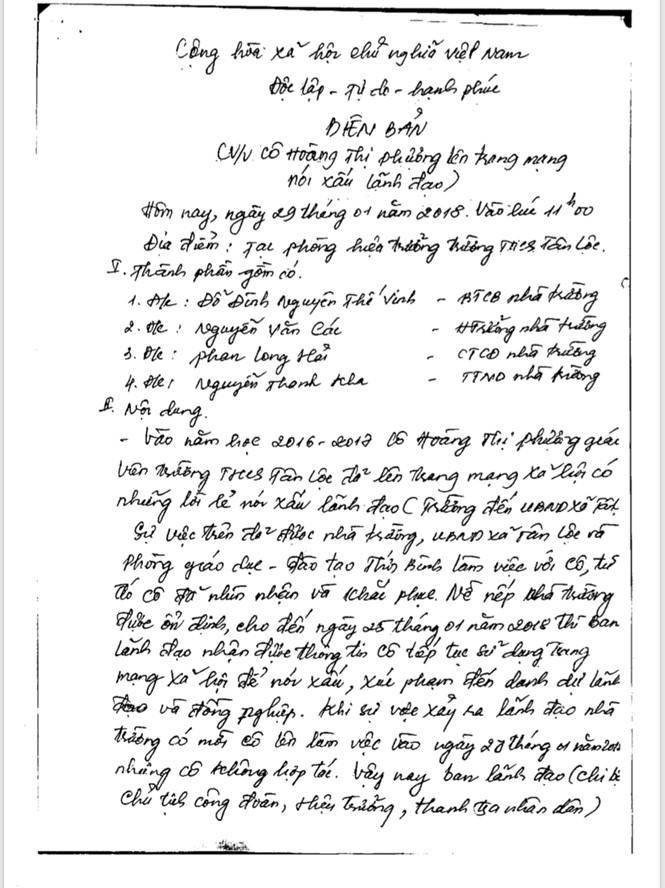 Cộng hòa xã hội chủ nghĩa Việt Nam
Độc lập - Tự do - hạnh phúc
BIÊN BẢN
(V/v Cô Hoàng Thị Phượng lên trang mạng
nói xấu lãnh đạo)
Hôm nay, ngày 29 tháng 01 năm 2018. Vào lúc 11h00
Địa điểm: Tại phòng hiệu trưởng trường THCS Tân Lộc.
I. Thành phần gồm có.
1. Đ/c: Đỗ Đình Nguyên Thế Vinh - BTCB nhà trường
2. Đ/c: Nguyễn Văn Các - HTrưởng nhà trường
3. Đ/c: Phan Long Hải - CTCĐ nhà trường
4. Đ/c: Nguyễn Thanh Kha - TTND nhà trường
II. Nội dung.
- Vào năm học 2016-2017 Cô Hoàng Thị Phượng giáo
viên trường THCS Tân Lộc đã lên trang mạng xã hội có
những lời lẽ nói xấu lãnh đạo (Trường đến UBND xã
Sự việc trên đã được nhà trường, UBND xã Tân Lộc và
Phòng giáo dục - đào tạo Thới Bình làm việc với cô, từ
đó cô đã nhìn nhận và khắc phục. Nề nếp nhà trường
được ổn định, cho đến ngày 25 tháng 01 năm 2018 thì ban
lãnh đạo nhận được thông tin cô tiếp tục sử dụng trang
mạng xã hội để nói xấu, xúc phạm đến danh dự lãnh
đạo và đồng nghiệp. Khi sự việc xẩy ra lãnh đạo nhà
trường có mời cô lên làm việc vào ngày tháng 01 năm
nhưng cô không hợp tác. Vậy nay ban lãnh đạo (chi bộ
Chủ tịch công đoàn, hiệu trưởng, thanh tra nhân dân)